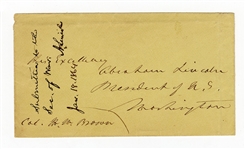 Submitted to the
Sec. of War.
Jan. 18. 1864
His Excellency
Abraham Lincoln
President of U.S.
Washington
Col.